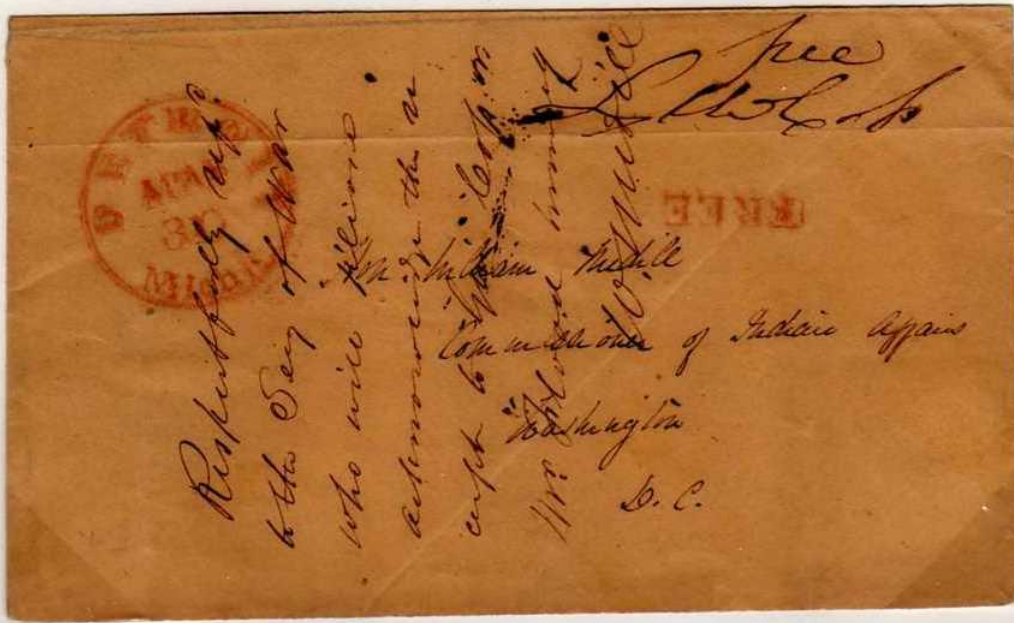 free
DETROIT
APR
30
MICH.
FREE
Mr William Medill
Commissioner of Indian Affairs
Washington
D. C.
Respectfully
to the Secy of War
who will please
acknowledge the re
ceipt to
Mr
W. Medill